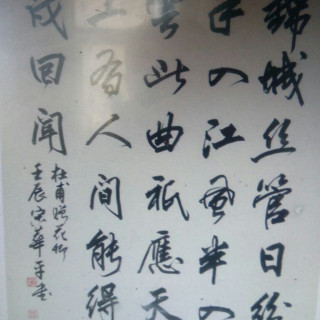 錦城丝管日纷
半入江風半入
雲此曲祇應天
上有人間能得
幾回聞
杜甫贈花卿
壬辰宋華平書